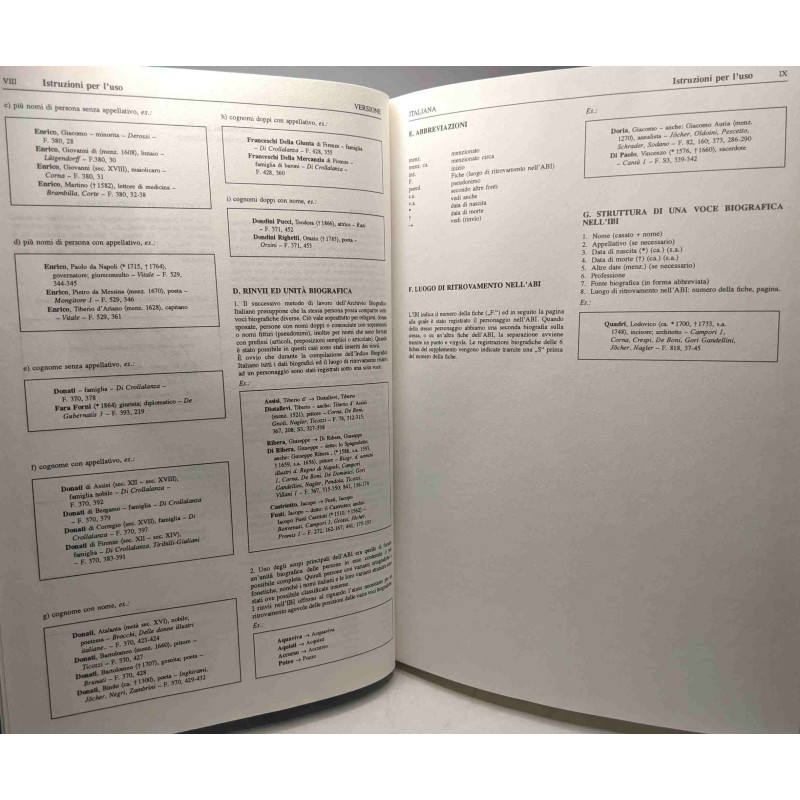 VIII Istruzioni per l'uso
VERSIONE
c) più nomi di persona senza appellativo, es.:
Enrico, Giacomo – minorita – Derossi –
F. 380, 28
Enrico, Giovanni di (menz. 1608), liutaio –
Lütgendorff – F.380, 30
Enrico, Giovanni (sec. XVIII), maiolicaro –
Corna – F. 380, 31
Enrico, Martino († 1582), lettore di medicina –
Brambilla, Corte – F. 380, 32-38
d) più nomi di persona con appellativo, es.:
Enrico, Paolo da Napoli (* 1715, † 1764),
governatore; giureconsulto – Vitale – F. 529,
344-345
Enrico, Pietro da Messina (menz. 1670), poeta –
Mongitore 1 – F. 529, 346
Enrico, Tiberio d'Ariano (menz. 1628), capitano
– Vitale – F. 529, 361
e) cognome senza appellativo, es.:
Donati – famiglia – Di Crollalanza –
F. 370, 378
Fara Forni (* 1864) giurista; diplomatico – De
Gubernatis 3 – F. 393, 219
f) cognome con appellativo, es.:
Donati di Assisi (sec. XII – sec. XVIII),
famiglia nobile – Di Crollalanza –
F. 370, 392
Donati di Bergamo – famiglia – Di Crollalanza
– F. 370, 379
Donati di Correggio (sec. XVII), famiglia – Di
Crollalanza – F. 370, 397
Donati di Firenze (sec. XII – sec. XIV),
famiglia – Di Crollalanza, Tiribilli-Giuliani
– F. 370, 383-391
g) cognome con nome, es.:
Donati, Atalanta (metà sec. XVI), nobile;
poetessa – Brocchi, Delle donne illustri
italiane.. – F. 370, 423-424
Donati, Bartolomeo (menz. 1660), pittore –
Ticozzi – F. 370, 427
Donati, Bartolomeo († 1307), gesuita; poeta –
Brunati – F. 370, 428
Donati, Bindo (ca. † 1300), poeta – Inghirami,
Jöcher, Negri, Zambrini – F. 370, 429-432
h) cognomi doppi con appellativo, es.:
Franceschi Della Giunta di Firenze – famiglia
– Di Crollalanza – F. 428, 355
Franceschi Della Mercanzia di Firenze –
famiglia di baroni – Di Crollalanza –
F. 428, 360
i) cognomi doppi con nome, es.:
Dondini Pucci, Teodora († 1866), attrice – Rasi
– F. 371, 452
Dondini Righetti, Orazio († 1785), poeta –
Orsini – F. 371, 455
D. RINVII ED UNITÀ BIOGRAFICA
1. Il successivo metodo di lavoro dell'Archivio Biografico
Italiano presuppone che la stessa persona possa comparire sotto
voci biografiche diverse. Ciò vale soprattutto per religiosi, donne
sposate, persone con nomi doppi o conosciute con soprannomi
o nomi fittizi (pseudonimi), inoltre per nomi che sono formati
con prefissi (articoli, preposizioni semplici o articolate). Quando
è stato possibile in questi casi sono stati inseriti dei rinvii.
È ovvio che durante la compilazione dell'Indice Biografico
Italiano tutti i dati biografici ed il luogo di ritrovamento relativi
ad un personaggio sono stati registrati sotto una voce.
Es.:
Assisi, Tiberio d' → Diotallevi, Tiberio
Diotallevi, Tiberio – anche: Tiberio d' Assisi
(menz. 1521), pittore – Corna, De Boni,
Gnoli, Nagler, Ticozzi – F. 76, 312-315;
367, 208; S3, 327-338
Ribera, Giuseppe → Di Ribera, Giuseppe
Di Ribera, Giuseppe – detto: lo Spagnoletto;
anche: Giuseppe Ribera, (* 1588, s.a. 1593,
† 1659, s.a. 1656), pittore – Biogr. d. uomini
illustri d. Regno di Napoli, Campori
1, Corna, De Boni, De Dominici, Gori
Gandellini, Nagler, Pendola, Ticozzi,
Villani 1 – F. 367, 315-350; 841, 136-174
Castriotto, Iacopo → Fusti, Iacopo
Fusti, Iacopo – detto: il Castriotto; anche:
Iacopo Fusti Castrioti (* 1510, † 1562) –
Benvenuti, Campori 1, Grossi, Jöcher,
Promis 1 – F. 272, 162-167; 441, 175-197
2. Uno degli scopi principali dell'ABI era quello di formare
un'unità biografica delle persone in esso contenute il più
possibile completa. Quindi persone con varianti ortografiche o
fonetiche, nonché i nomi italiani e le loro varianti straniere sono
stati ove possibile classificate insieme.
I rinvii nell'IBI offrono al riguardo l'aiuto necessario per un
ritrovamento agevole delle posizioni delle varie voci biografiche.
Es.:
Aquaviva → Acquaviva
Aquisti → Acquisti
Accurso → Accursio
Poteo → Pozzo
ITALIANA
Istruzioni per l'uso IX
E. ABBREVIAZIONI
menz. menzionato
menz. ca. menzionato circa
int. inizio
F. Fiche (luogo di ritrovamento nell'ABI)
pseud. pseudonimo
s.a. secondo altre fonti
v.a. vedi anche
* data di nascita
† data di morte
→ vedi (rinvio)
F. LUOGO DI RITROVAMENTO NELL'ABI
L'IBI indica il numero della fiche („F.“) ed in seguito la pagina
alla quale è stato registrato il personaggio nell'ABI. Quando
della stesso personaggio abbiamo una seconda biografia sulla
stessa, o su un'altra fiche dell'ABI, la separazione avviene
tramite un punto e virgola. Le registrazioni biografiche delle 6
fiches del supplemento vengono indicate tramite una „S“ prima
del numero della fiche.
Es.:
Doria, Giacomo – anche: Giacomo Auria (menz.
1270), annalista – Jöcher, Oldoini, Pescetto,
Schrader, Sodano – F. 82, 160; 373, 286-290
Di Paolo, Vincenzo (* 1576, † 1660), sacerdote
– Cantù 1 – F. S3, 339-342
G. STRUTTURA DI UNA VOCE BIOGRAFICA
NELL'IBI
1. Nome (casato + nome)
2. Appellativo (se necessario)
3. Data di nascita (*) (ca.) (s.a.)
4. Data di morte (†) (ca.) (s.a.)
5. Altre date (menz.) (se necessario)
6. Professione
7. Fonte biografica (in forma abbreviata)
8. Luogo di ritrovamento nell'ABI: numero della fiche, pagina.
Es.:
Quadri, Lodovico (ca. * 1700, † 1733, s.a.
1748), incisore; architetto – Campori 1,
Corna, Crespi, De Boni, Gori Gandellini,
Jöcher, Nagler – F. 818, 37-45